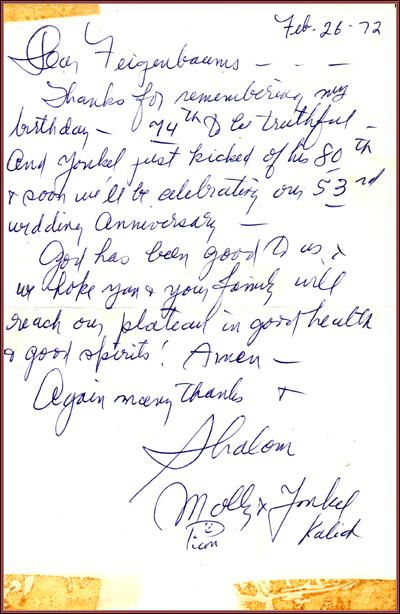 Feb. 26 - 72
Dear Feigenbaums - - -
Thanks for remembering my
birthday - 74th to be truthful -
And Yonkel just kicked of his 80th
& soon we'll be celebrating our 53rd
wedding Anniversary -
God has been good to us, &
we hope you & your family will
reach our plateau in good health
& good spirits! Amen -
Again many thanks &
Shalom
Molly & Yonkel
Picon Kalich